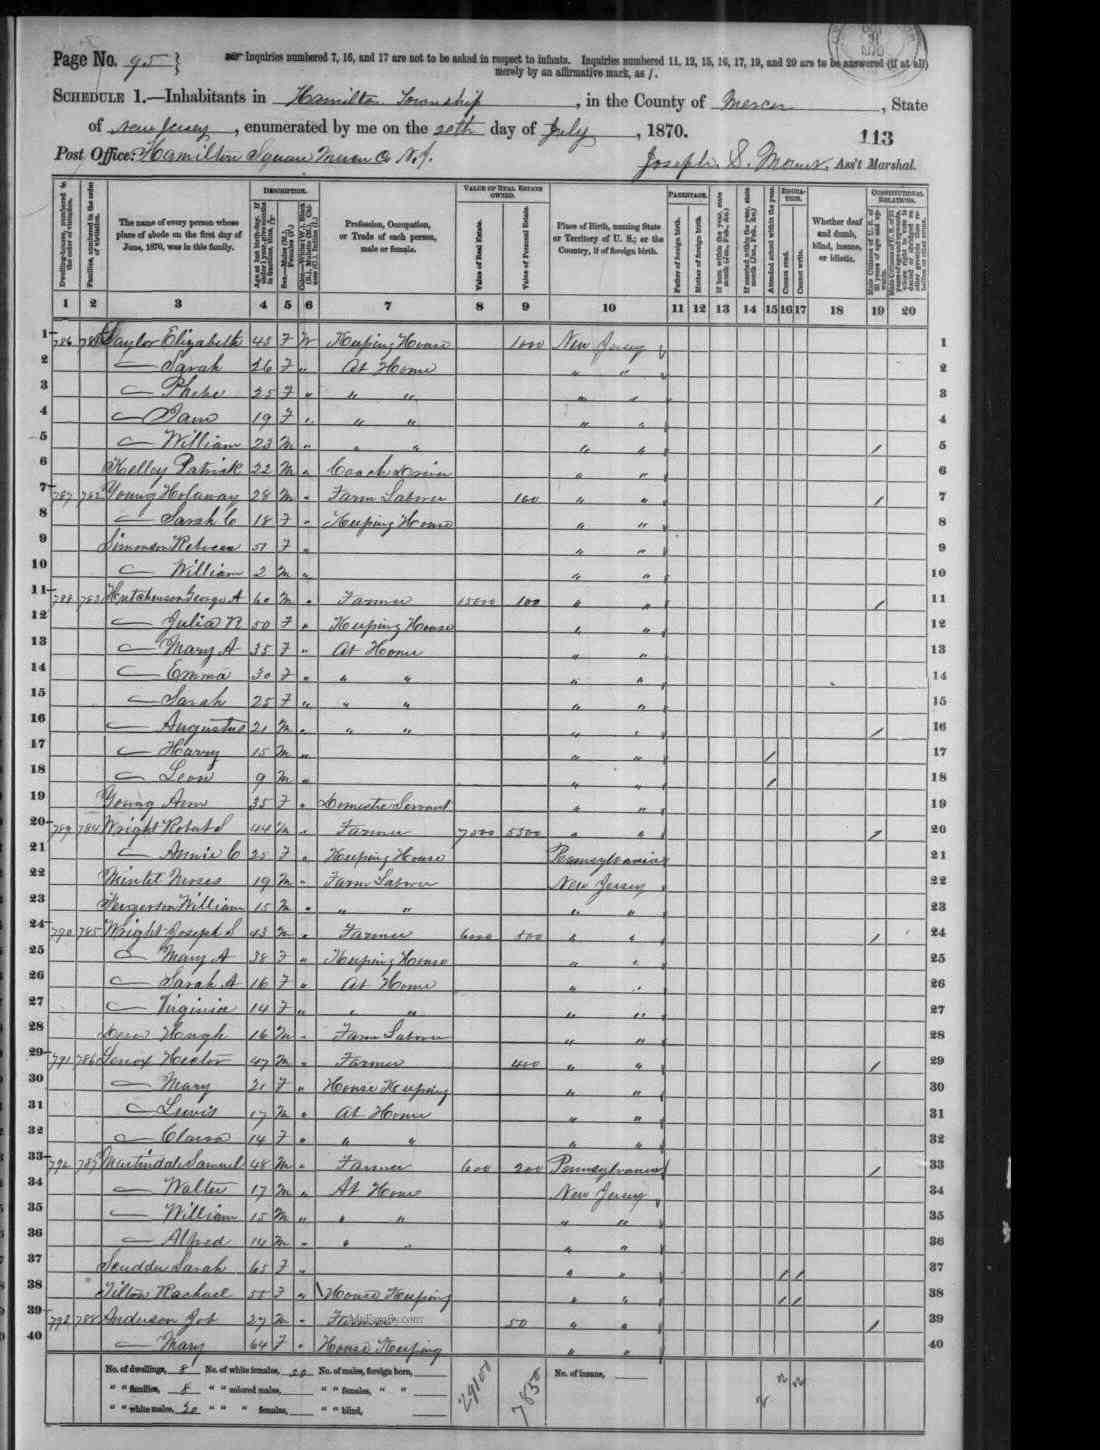 Page No. 95 } Inquiries numbered 7, 16, and 17 are not to be asked in respect to infants. Inquiries numbered 11, 12, 15, 16, 17, 19, and 20 are to be answered (if at all)
merely by an affirmative mark, as /.
SCHEDULE 1.—Inhabitants in Hamilton Township, in the County of Mercer, State
of New Jersey, enumerated by me on the 20th day of July, 1870.
113
Post Office: Hamilton Square Mercer Co N.J. Joseph S. Ass't Marshal.
Dwelling-houses, numbered in the order of visitation.
Families, numbered in the order of visitation.
The name of every person whose place of abode on the first day of June, 1870, was in this family.
DESCRIPTION.
Profession, Occupation, or Trade of each person, male or female.
VALUE OF REAL ESTATE OWNED.
Value of Real Estate.
Value of Personal Estate.
Place of Birth, naming State or Territory of U. S.; or the Country, if of foreign birth.
PARENTAGE.
Father of foreign birth.
Mother of foreign birth.
If born within the year, state month (Jan., Feb., &c.)
If married within the year, state month (Jan., Feb., &c.)
Attended school within the year.
EDUCATION.
Cannot read.
Cannot write.
Whether deaf and dumb, blind, insane, or idiotic.
CONSTITUTIONAL RELATIONS.
1 2 3 4 5 6 7 8 9 10 11 12 13 14 15 16 17 18 19 20
1 786 Taylor Elizabeth 48 F W Keeping House 1000 New Jersey 1
2 — Sarah 26 F " At Home " " 2
3 — Phebe 25 F " " " " " 3
4 — 19 F " " " " " 4
5 — William 23 M " " " " " / 5
6 Kelley Patrick 22 M " Coach Driver " " 6
7 787 782 Young Holaway 28 M " Farm Laborer 100 " " / 7
8 — Sarah C 18 F " Keeping House " " 8
9 Simonson Rebecca 51 F " " " 9
10 — William 2 M " " " 10
11 788 783 Hutchinson George A 60 M " Farmer 15000 100 " " / 11
12 — Julia N 50 F " Keeping House " " 12
13 — Mary A 35 F " At Home " " 13
14 — Emma 30 F " " " " " 14
15 — Sarah 25 F " " " " " 15
16 — Augustus 21 M " " " " " / 16
17 — Harry 15 M " " " / 17
18 — Leon 9 M " " " / 18
19 Young Ann 35 F " Domestic Servant " " 19
20 789 784 Wright Robert S 44 M " Farmer 7000 5500 " " / 20
21 — Annie C 25 F " Keeping House Pennsylvania 21
22 Moses 19 M " Farm Laborer New Jersey 22
23 William 15 M " " " " " 23
24 790 785 Wright Joseph S 43 M " Farmer 6000 500 " " / 24
25 — Mary A 38 F " Keeping House " " 25
26 — Sarah A 16 F " At Home " " 26
27 — Virginia 14 F " " " " " 27
28 Hugh 16 M " Farm Laborer " " 28
29 791 786 Lenox Hector 47 M " Farmer 400 " " / 29
30 — Mary 21 F " House Keeping " " 30
31 — Lewis 17 M " At Home " " 31
32 — Clara 14 F " " " " " 32
33 792 787 Martindale Samuel 48 M " Farmer 600 200 Pennsylvania / 33
34 — Walter 17 M " At Home New Jersey 34
35 — William 15 M " " " " " 35
36 — Alfred 14 M " " " " " 36
37 Scudder Sarah 65 F " " " / / 37
38 Tilton Rachael 55 F " House Keeping " " / / 38
39 793 788 Anderson Job 27 M " Farmer 50 " " / 39
40 — Mary 64 F " House Keeping " " 40
No. of dwellings, 8 No. of white females, 20 No. of males, foreign born, No. of insane,
" " families, 8 " " colored males, " " females, " "
" " white males, 20 " " " females, " " blind,
29100 7850 2 2 2